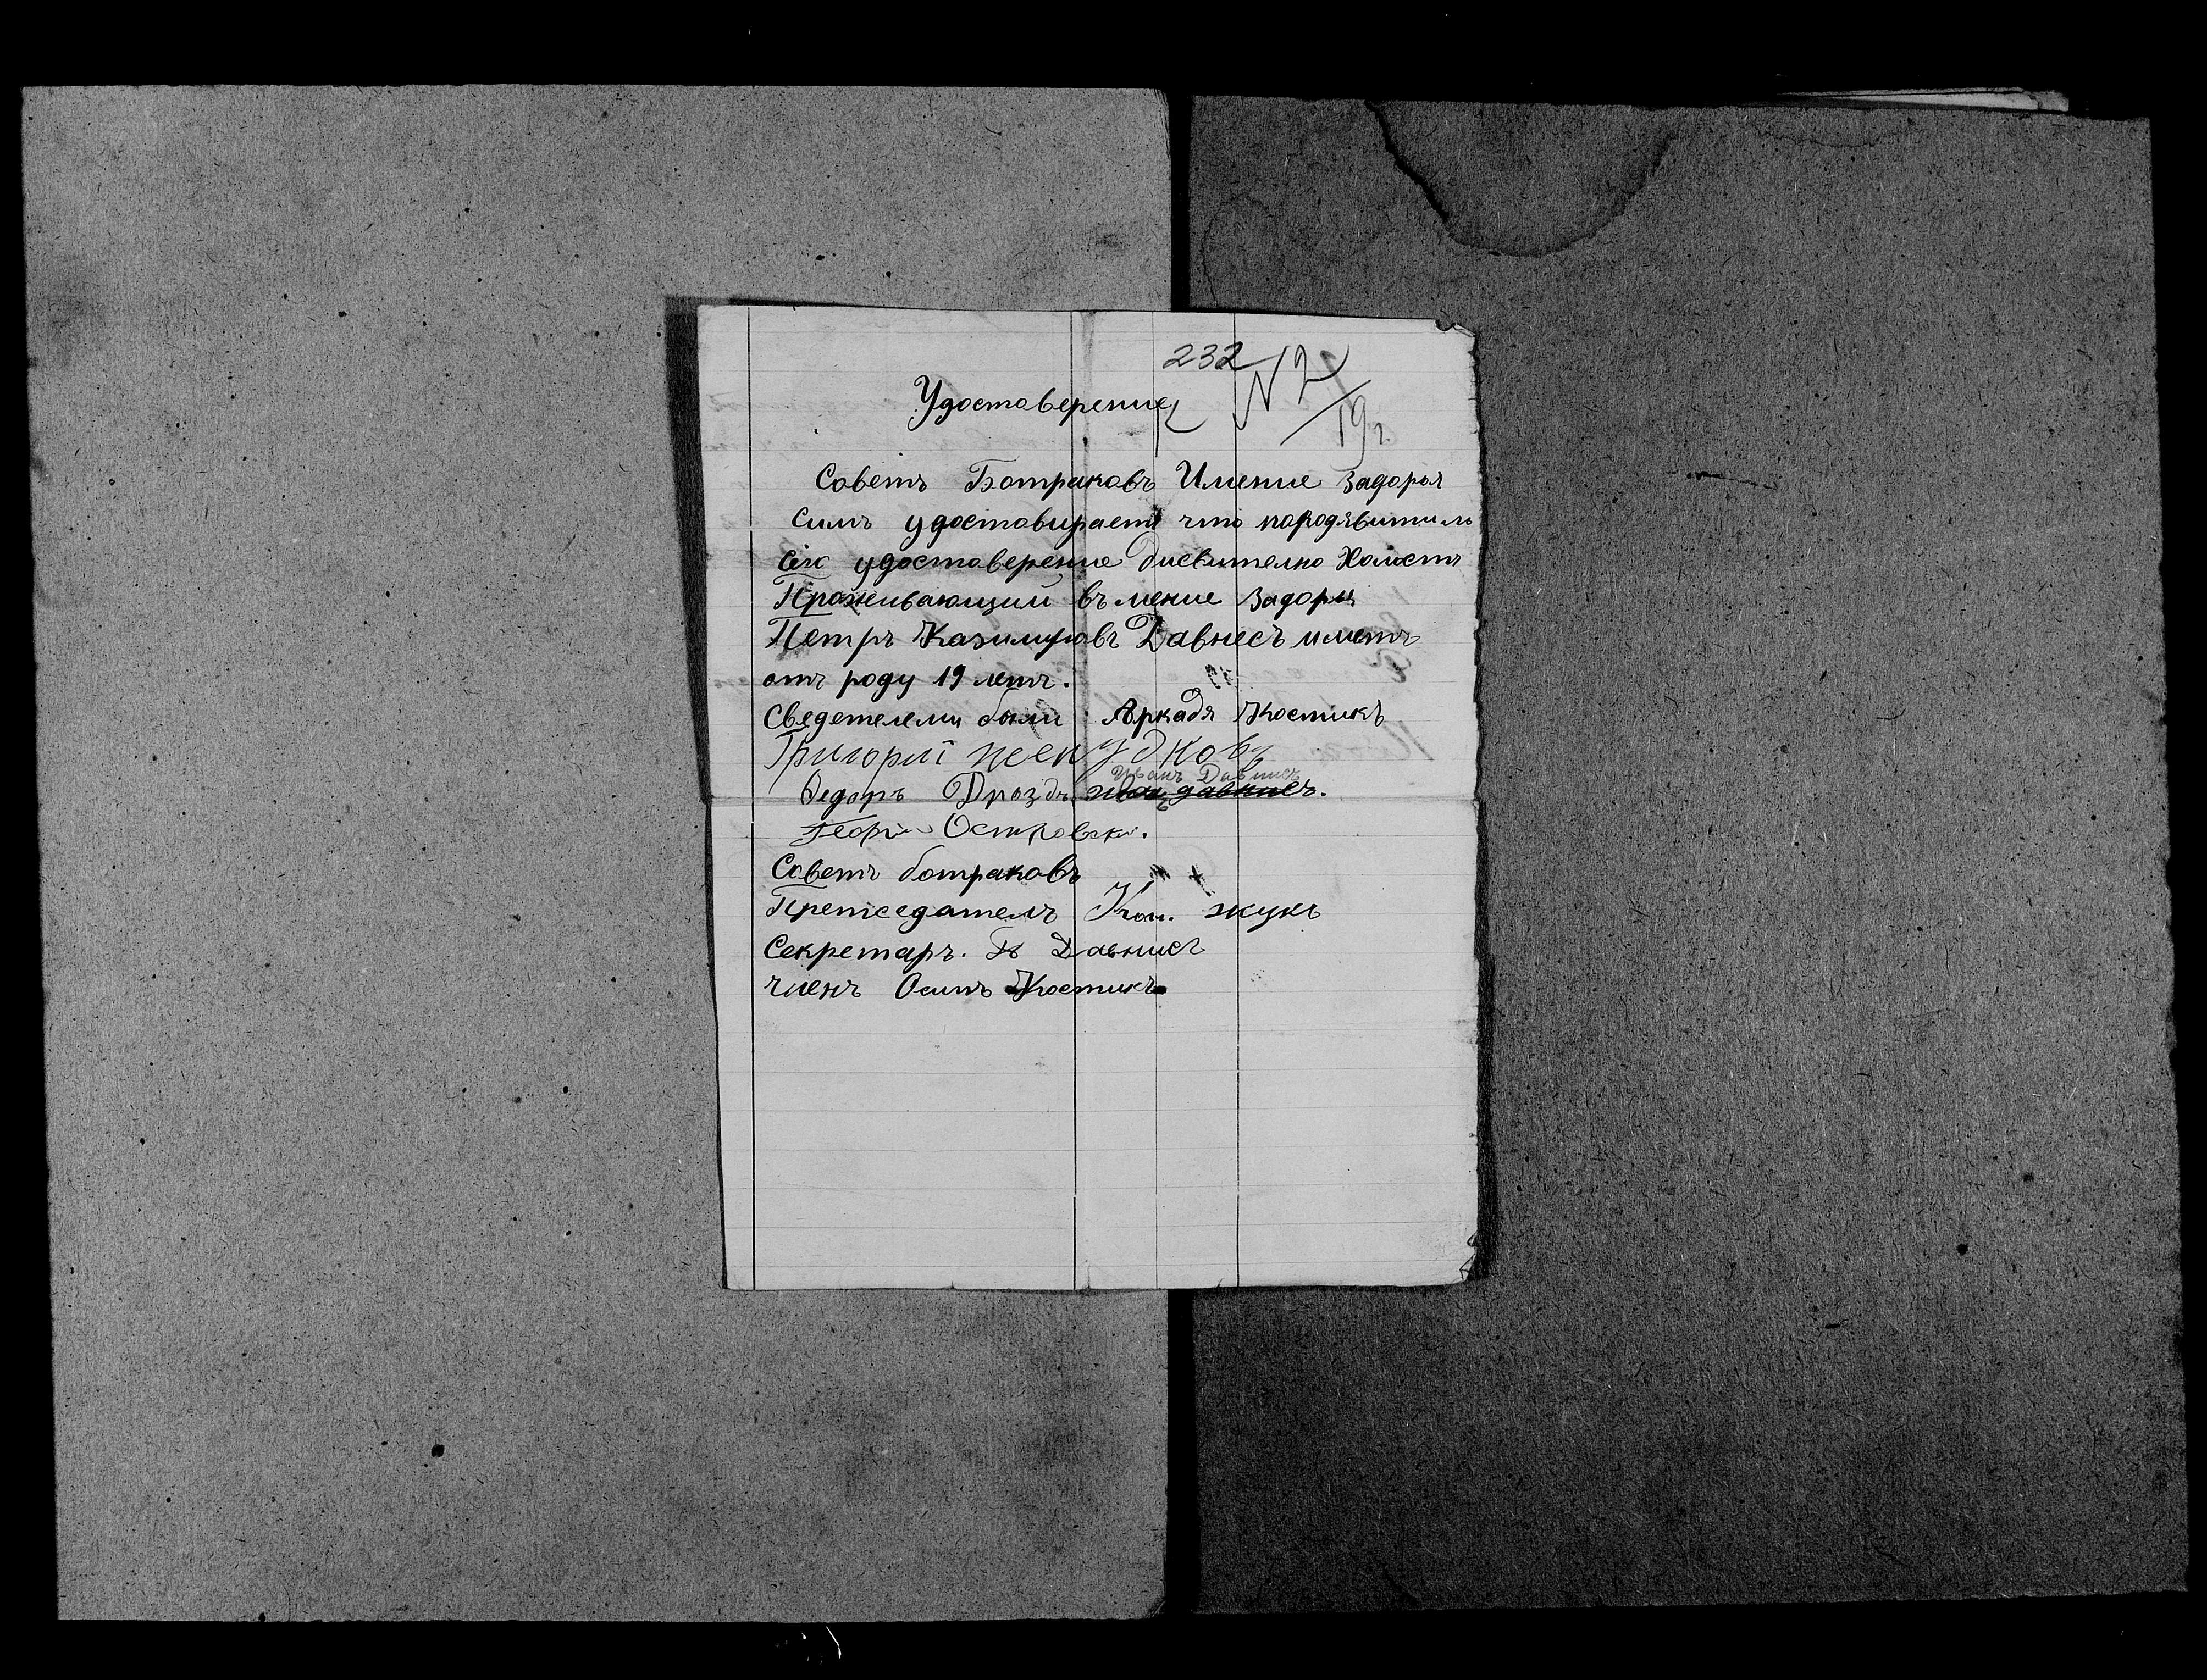 232 N 2/19 г.
Удостоверение
Советъ Ботраковъ Имение Задоря
Симъ удостовираетъ что пародявитиль
сего удостоверение диевително Холостъ
Проживающий въ мение Задоры
Петръ Казимировъ Давнесъ иметъ
отъ роду 19 летъ.
Сведетелеми были Аркадя Костикъ
Григорий
Иванъ Давнисъ
Федоръ Дроздъ давнисъ.
Георги Островски.
Советъ ботраковъ
Претседателъ Кон. жукъ
Секретаръ. П Давнисъ
членъ Осипъ Костикъ